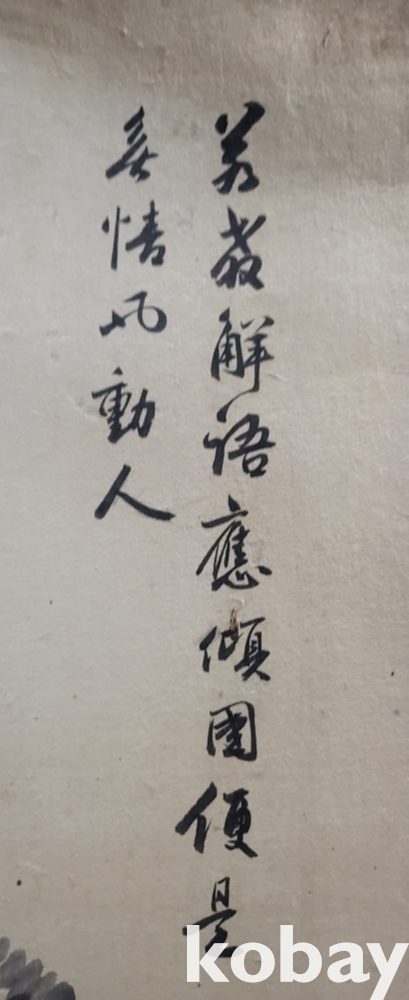 若教解語應傾國便是
無情㐌動人
kobay